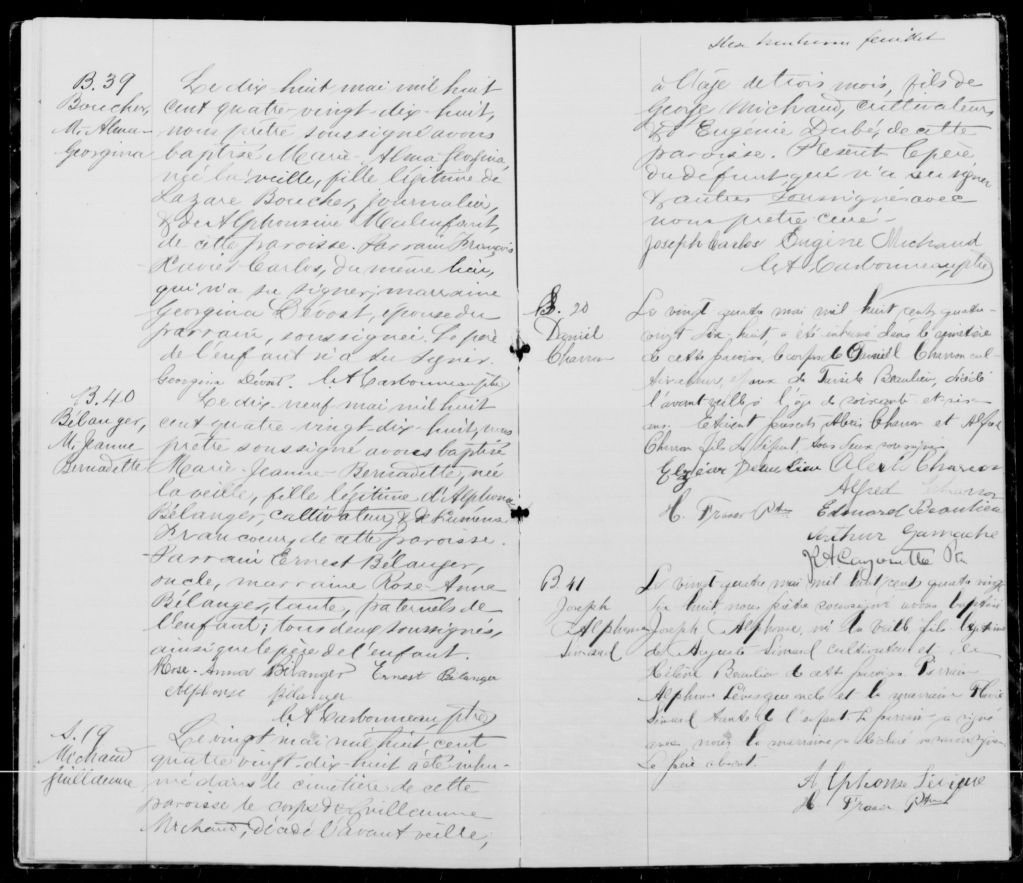 B.39
Boucher,
M. Alma-
Georgina
Le dix-huit mai mil huit
cent quatre-vingt-dix-huit,
nous prêtre soussigné avons
baptisé Marie-Alma Georgina,
née la veille, fille légitime de
Lazare Boucher, journalier,
& de Alphonsine Malenfant,
de cette paroisse. Parrain François
Xavier Carlos, du même lieu,
qui n'a su signer; marraine
Georgina Dévost, épouse du
parrain, soussignée. Le père
de l'enfant n'a su signer.
Georgina Dévost. Ls A Carbonneau ptre
B.40
Bélanger,
M. Jeanne
Bernadette
Le dix-neuf mai mil huit
cent quatre-vingt-dix-huit, nous
prêtre soussigné avons baptisé
Marie-Jeanne-Bernadette, née
la veille, fille légitime d'Alphonse
Bélanger, cultivateur, & de
Francoeur, de cette paroisse.
Parrain Ernest Bélanger,
oncle, marraine Rose-Anna
Bélanger, tante, paternels de
l'enfant; tous deux soussignés,
ainsi que le père de l'enfant.
Rose-Anna Bélanger Ernest Bélanger
Alphonse Bélanger
Ls A Carbonneau ptre
S.19
Michaud
Guillaume
Le vingt mai mil huit cent
quatre-vingt-dix-huit a été inhu-
mé dans le cimetière de cette
paroisse le corps de Guillaume
Michaud, décédé l'avant veille,
feuillet
à l'âge de trois mois, fils de
George Michaud, cultivateur,
& d'Eugénie Dubé, de cette
paroisse. Présent le père
du défunt qui n'a su signer
& autres soussignés avec
nous prêtre curé.
Joseph Carlos Eugène Michaud
Ls A Carbonneau ptre
S. 20
Daniel
Charron
Le vingt quatre mai mil huit cent quatre-
vingt dix-huit, a été inhumé dans le cimetière
de cette paroisse, le corps de Daniel Charron cul-
tivateur, époux de Beaulieu, décédé
l'avant veille à l'âge de soixante et six
ans. Etaient présents Albéric Charron et Alfred
Charron fils du défunt tous deux soussignés
Elzéar Beaulieu Charron
Alfred Charron
H. Fraser Ptre Edouard Beaulieu
Arthur Gamache
Ptr
B. 41
Joseph
Alphonse
Simard
Le vingt quatre mai mil huit cent quatre vingt
dix huit nous prêtre soussigné avons baptisé
Joseph Alphonse, né la veille fils légitime
de Auguste Simard cultivateur et de
Beaulieu de cette paroisse Parrain
Alphonse Lévesque oncle et la marraine Marie
Simard tante de l'enfant. Le parrain a signé
avec nous la marraine a déclaré ne savoir signer
Le père absent.
Alphonse Lévesque
H. Fraser Ptre